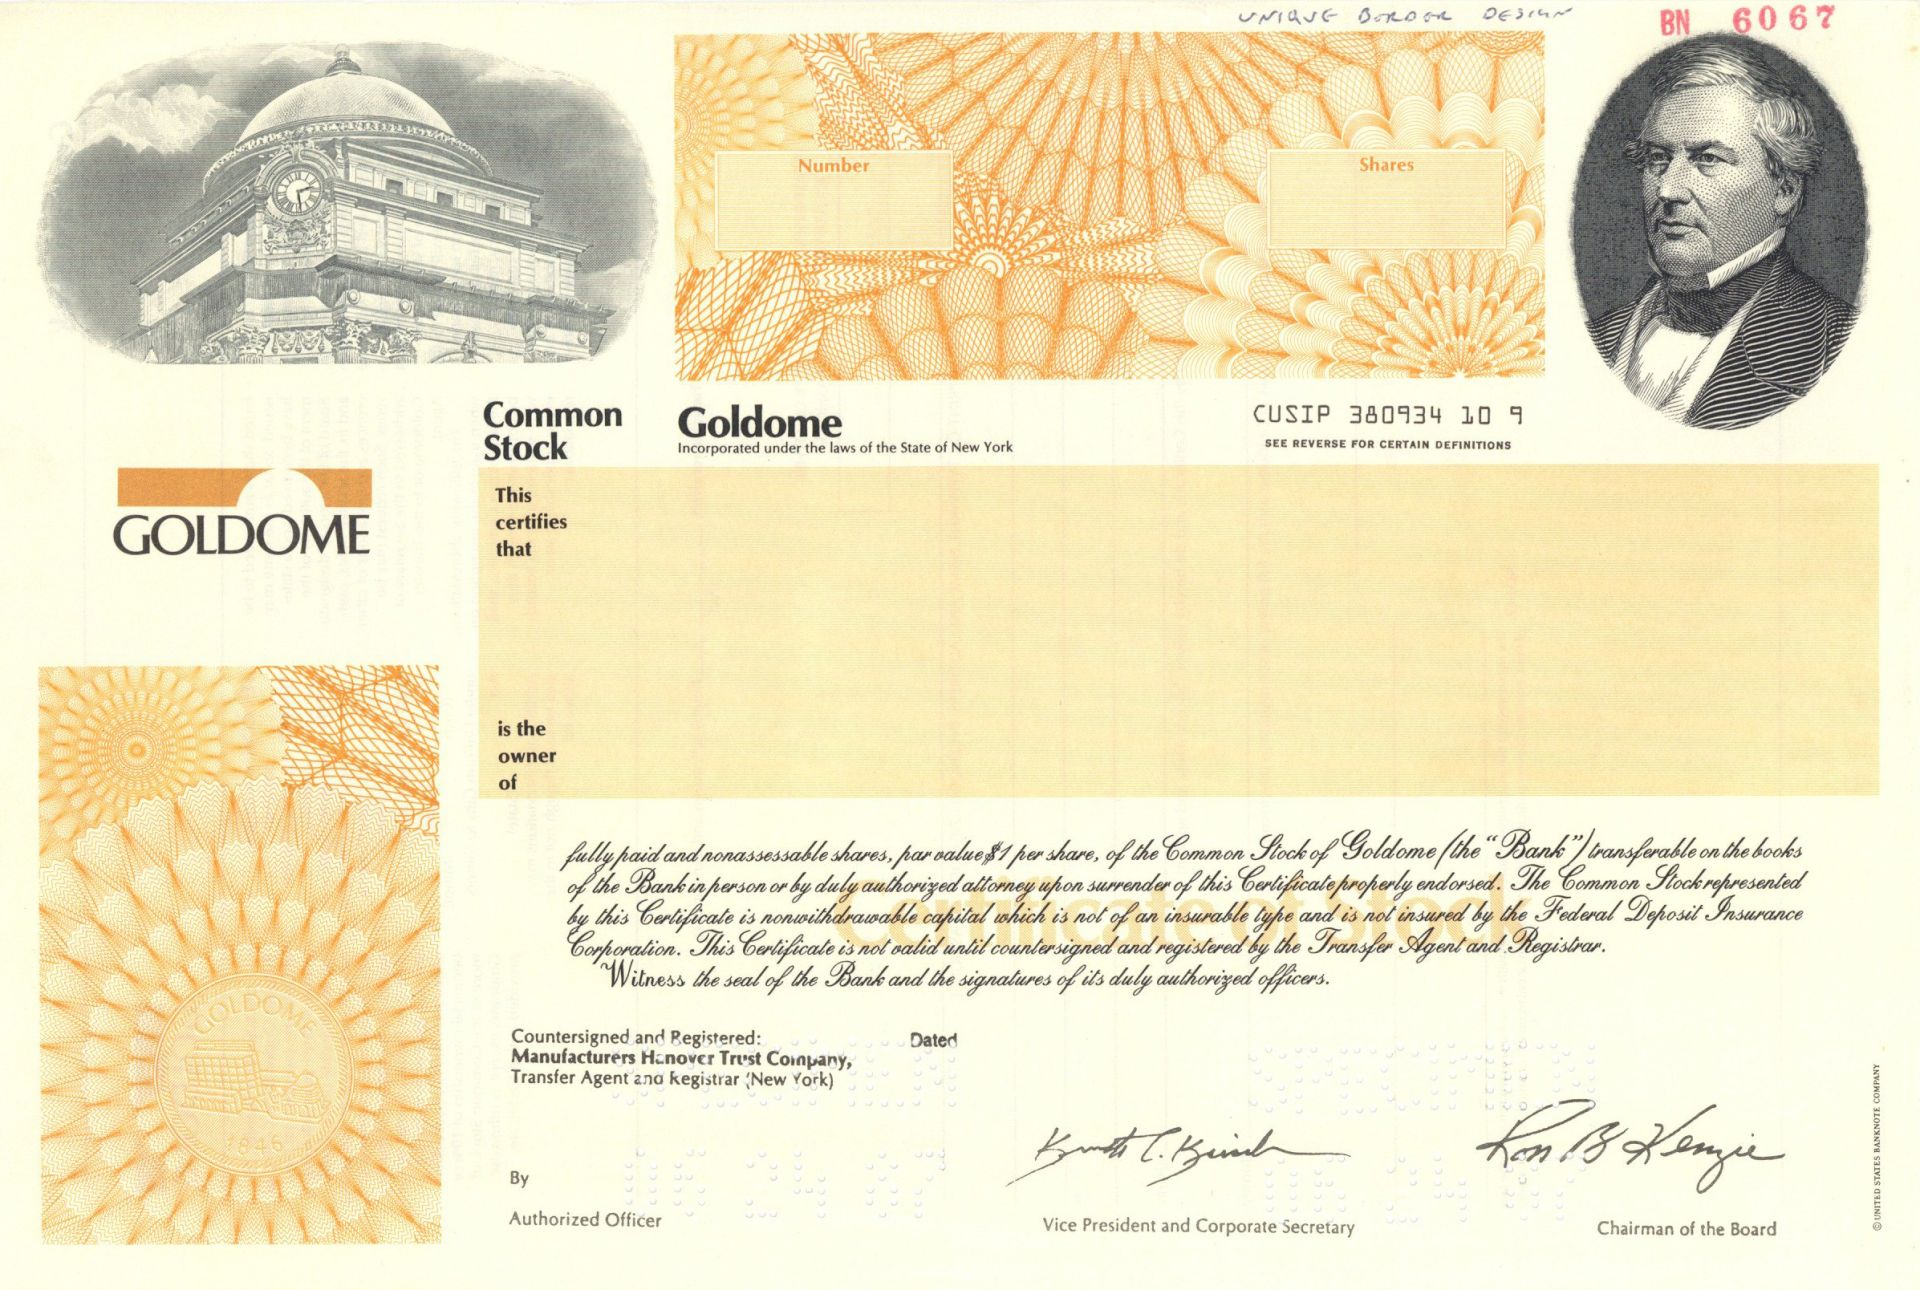 UNIQUE BORDER DESIGN
BN 6067
Number
Shares
Common
Stock
Goldome
Incorporated under the laws of the State of New York
CUSIP 380934 10 9
SEE REVERSE FOR CERTAIN DEFINITIONS
GOLDOME
This
certifies
that
is the
owner
of
Certificate of Stock
fully paid and nonassessable shares, par value $1 per share, of the Common Stock of Goldome (the “Bank”) transferable on the books
of the Bank in person or by duly authorized attorney upon surrender of this Certificate properly endorsed. The Common Stock represented
by this Certificate is nonwithdrawable capital which is not of an insurable type and is not insured by the Federal Deposit Insurance
Corporation. This Certificate is not valid until countersigned and registered by the Transfer Agent and Registrar.
Witness the seal of the Bank and the signatures of its duly authorized officers.
GOLDOME
1846
Countersigned and Registered:
Manufacturers Hanover Trust Company,
Transfer Agent and Registrar (New York)
Dated
SPECIMEN
SPECIMEN
By
Authorized Officer
Kenneth C.
Vice President and Corporate Secretary
Ross B Kenzie
Chairman of the Board
© UNITED STATES BANKNOTE COMPANY